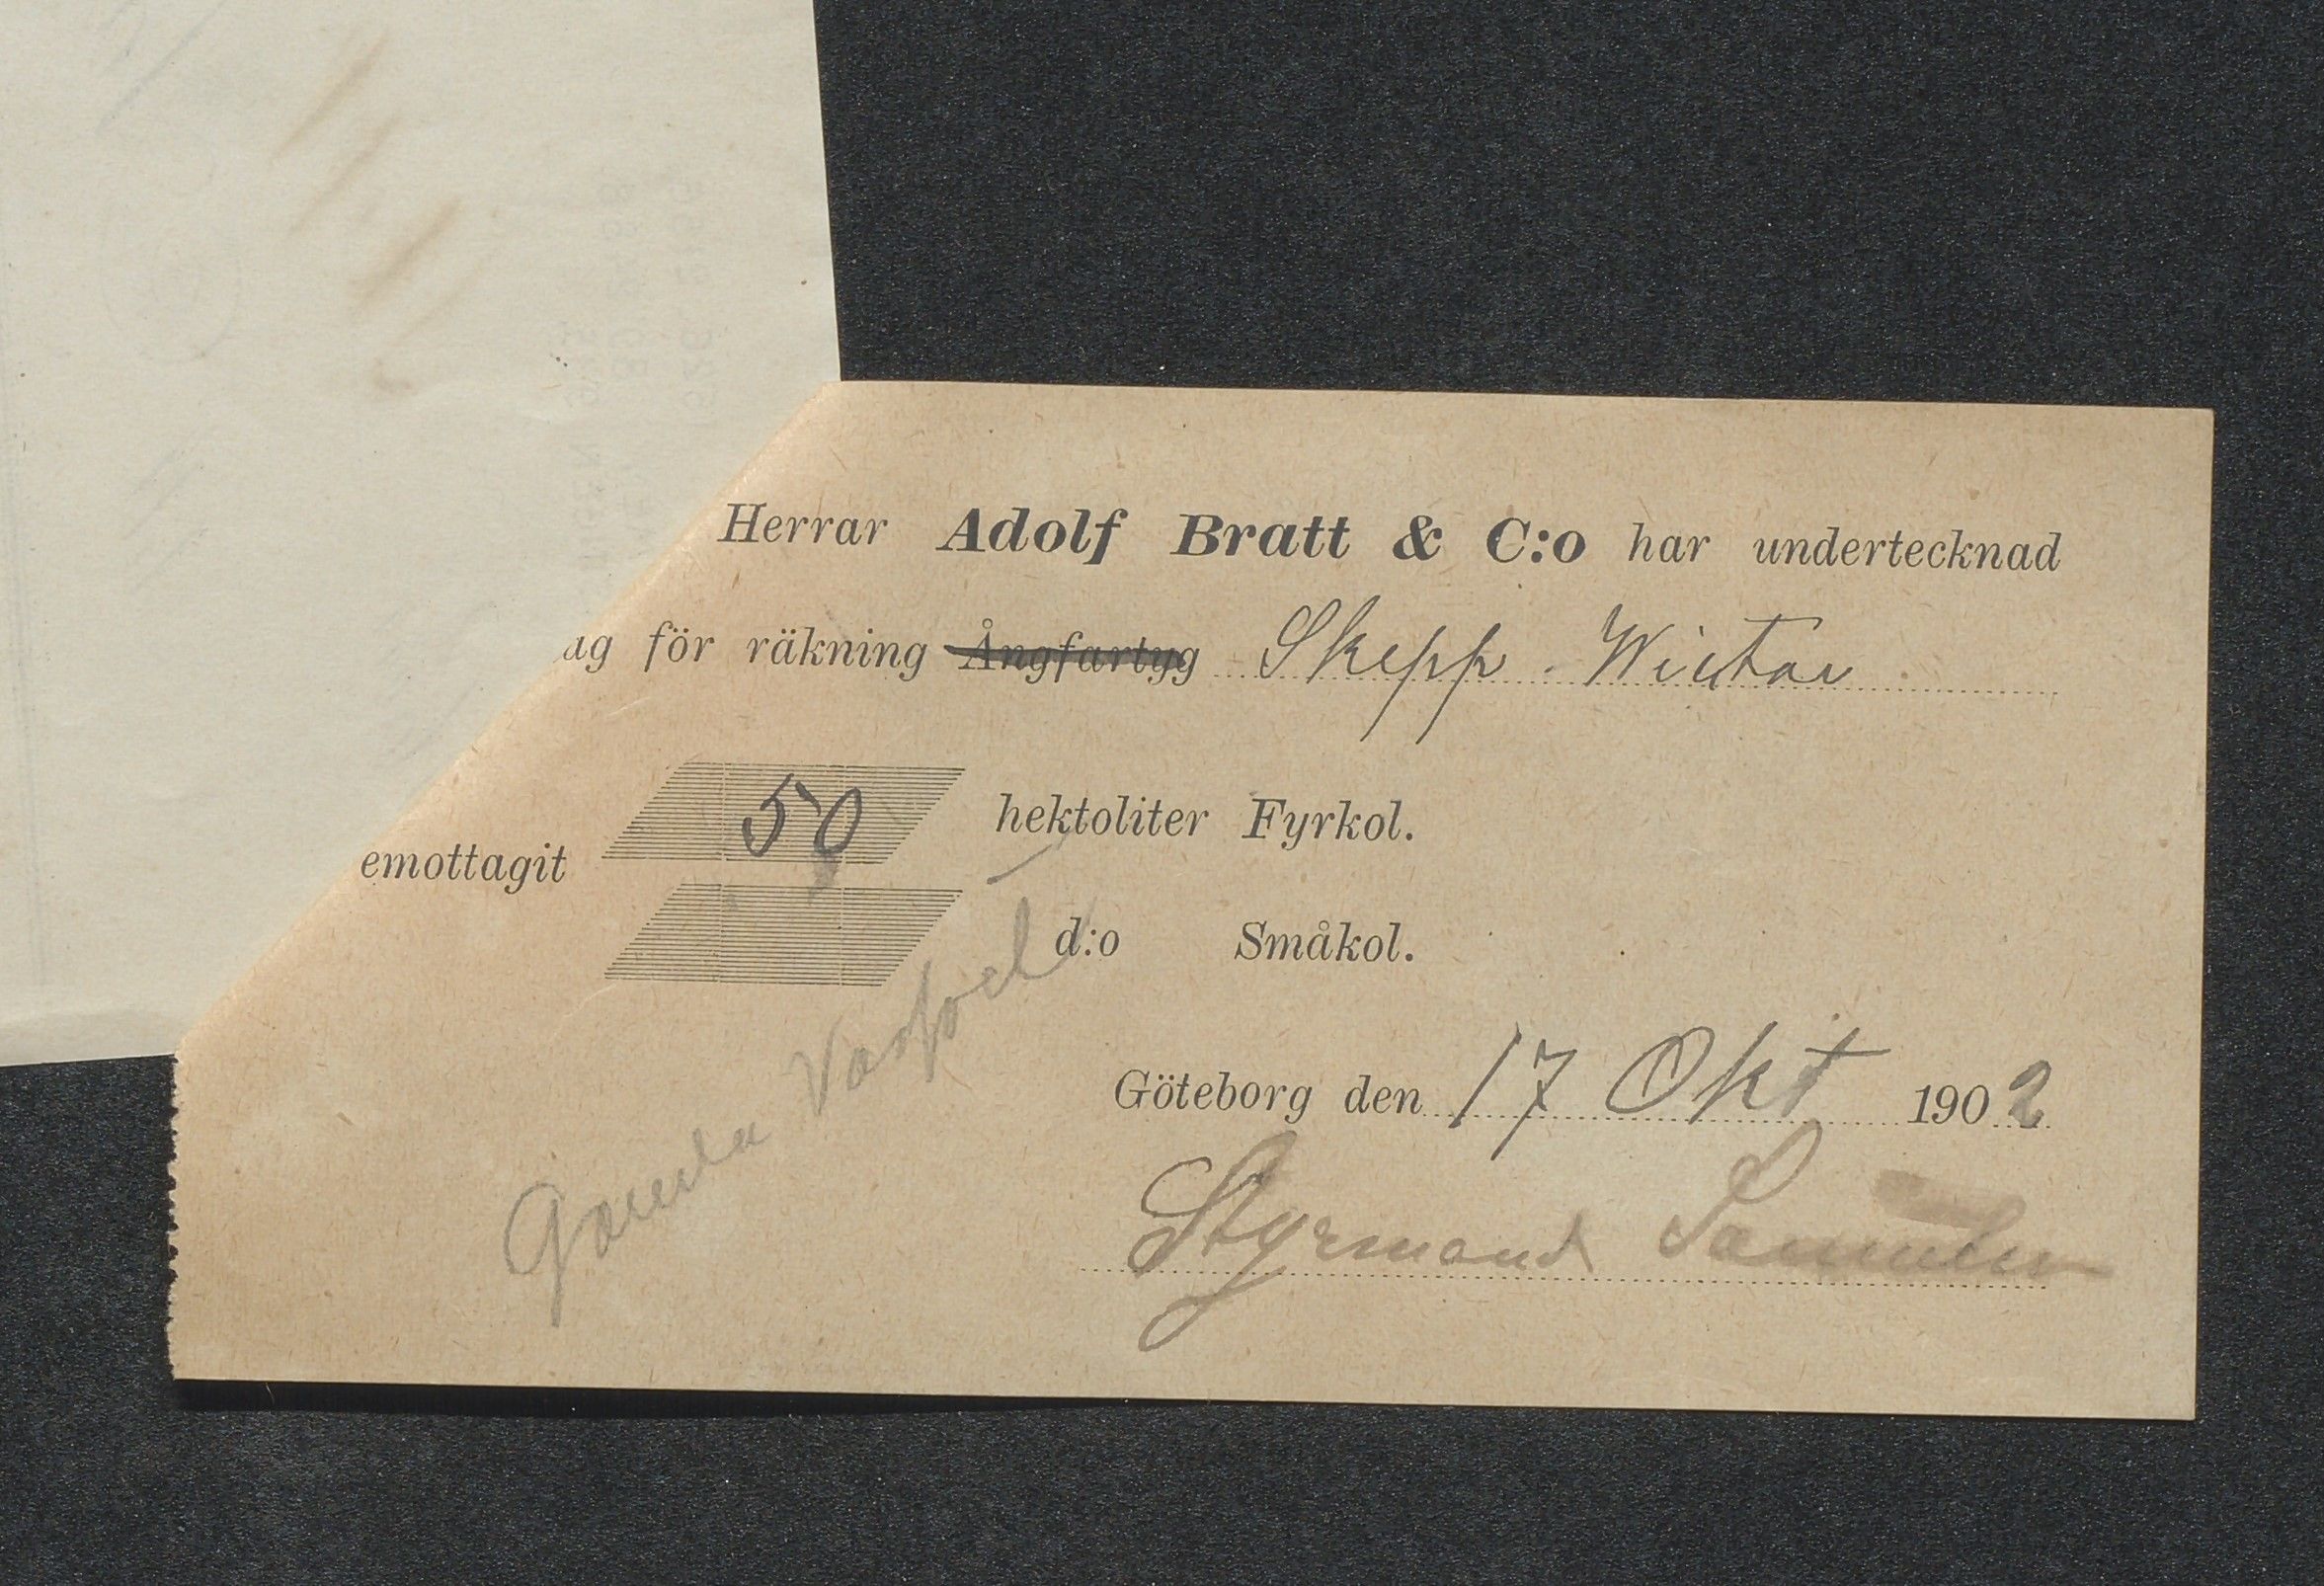 Herrar Adolf Bratt & C:o har undertecknad
ag för räkning Ångfartyg Skepp. Wictor
emottagit 50 hektoliter Fyrkol.
d:o Småkol.
Gamla Varfvet
Göteborg den 17 Okt 1902
Styrmand